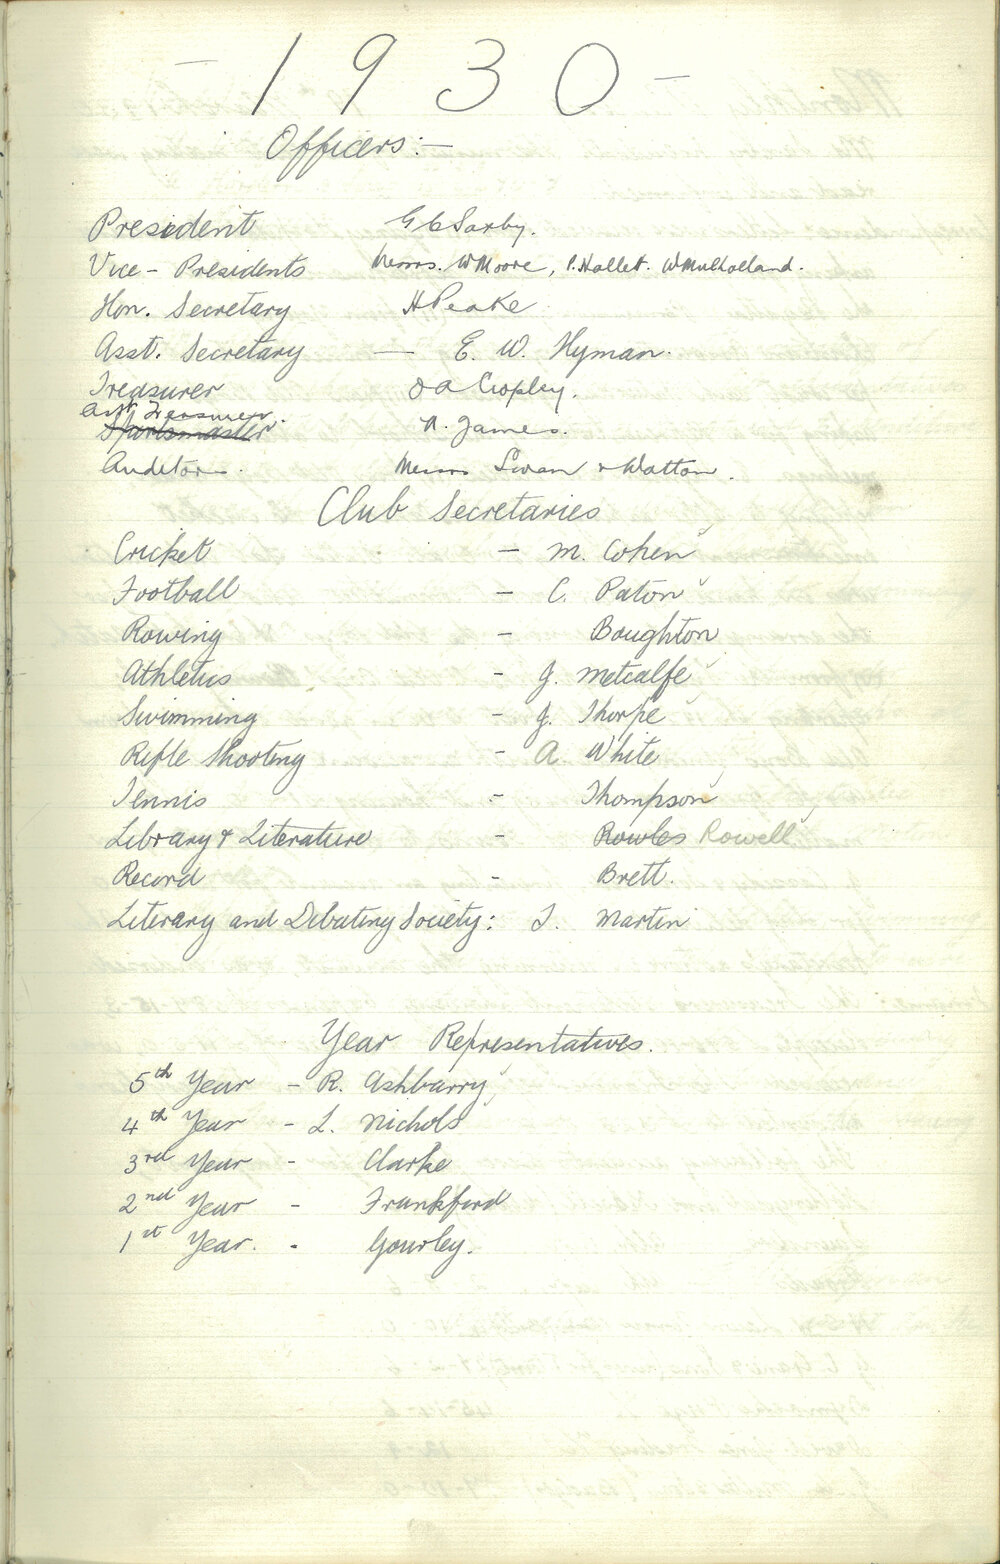 - 1930 -
Officers:-
President G C Saxby.
Vice - Presidents Messrs. W Moore, P. Hallet. W Mulholland.
Hon. Secretary H Peake
Asst. Secretary — E. W. Hyman.
Treasurer O A Cropley.
Asst Treasurer.
Sportsmaster. A. James.
Auditors. Messrs Swan & Watton.
Club Secretaries
Cricket - M. Cohen
Football - C. Paton
Rowing - Boughton
Athletics - J. Metcalfe
Swimming - J. Thorpe
Rifle Shooting - A White
Tennis - Thompson
Library & Literature - Rowles Rowell
Record - Brett.
Literary and Debating Society: T. Martin
Year Representatives.
5th Year - R. Ashbarry
4th Year - L. Nichols
3rd Year - Clarke
2nd Year - Frankford
1st Year. - Gourley.